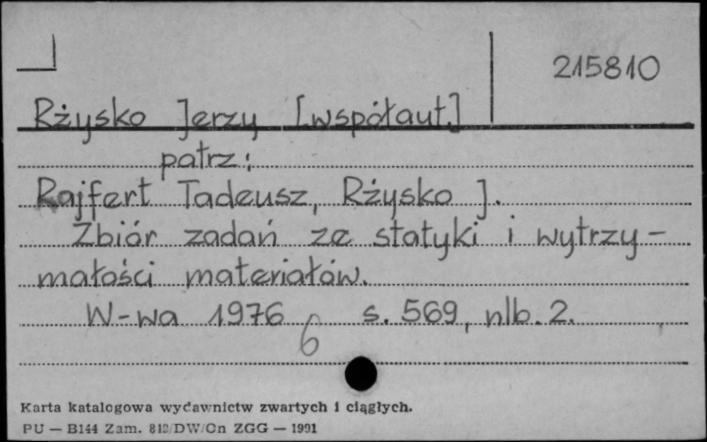 215810
Rżysko Jerzy [współaut.]
patrz:
Rajfert Tadeusz, Rżysko J.
Zbiór zadań ze statyki i wytrzy-
małości materiałów.
W-wa 1976 s. 569, nlb. 2.
6
Karta katalogowa wydawnictw zwartych i ciągłych.
PU — B144 Zam. 812/DW/Cn ZGG — 1991